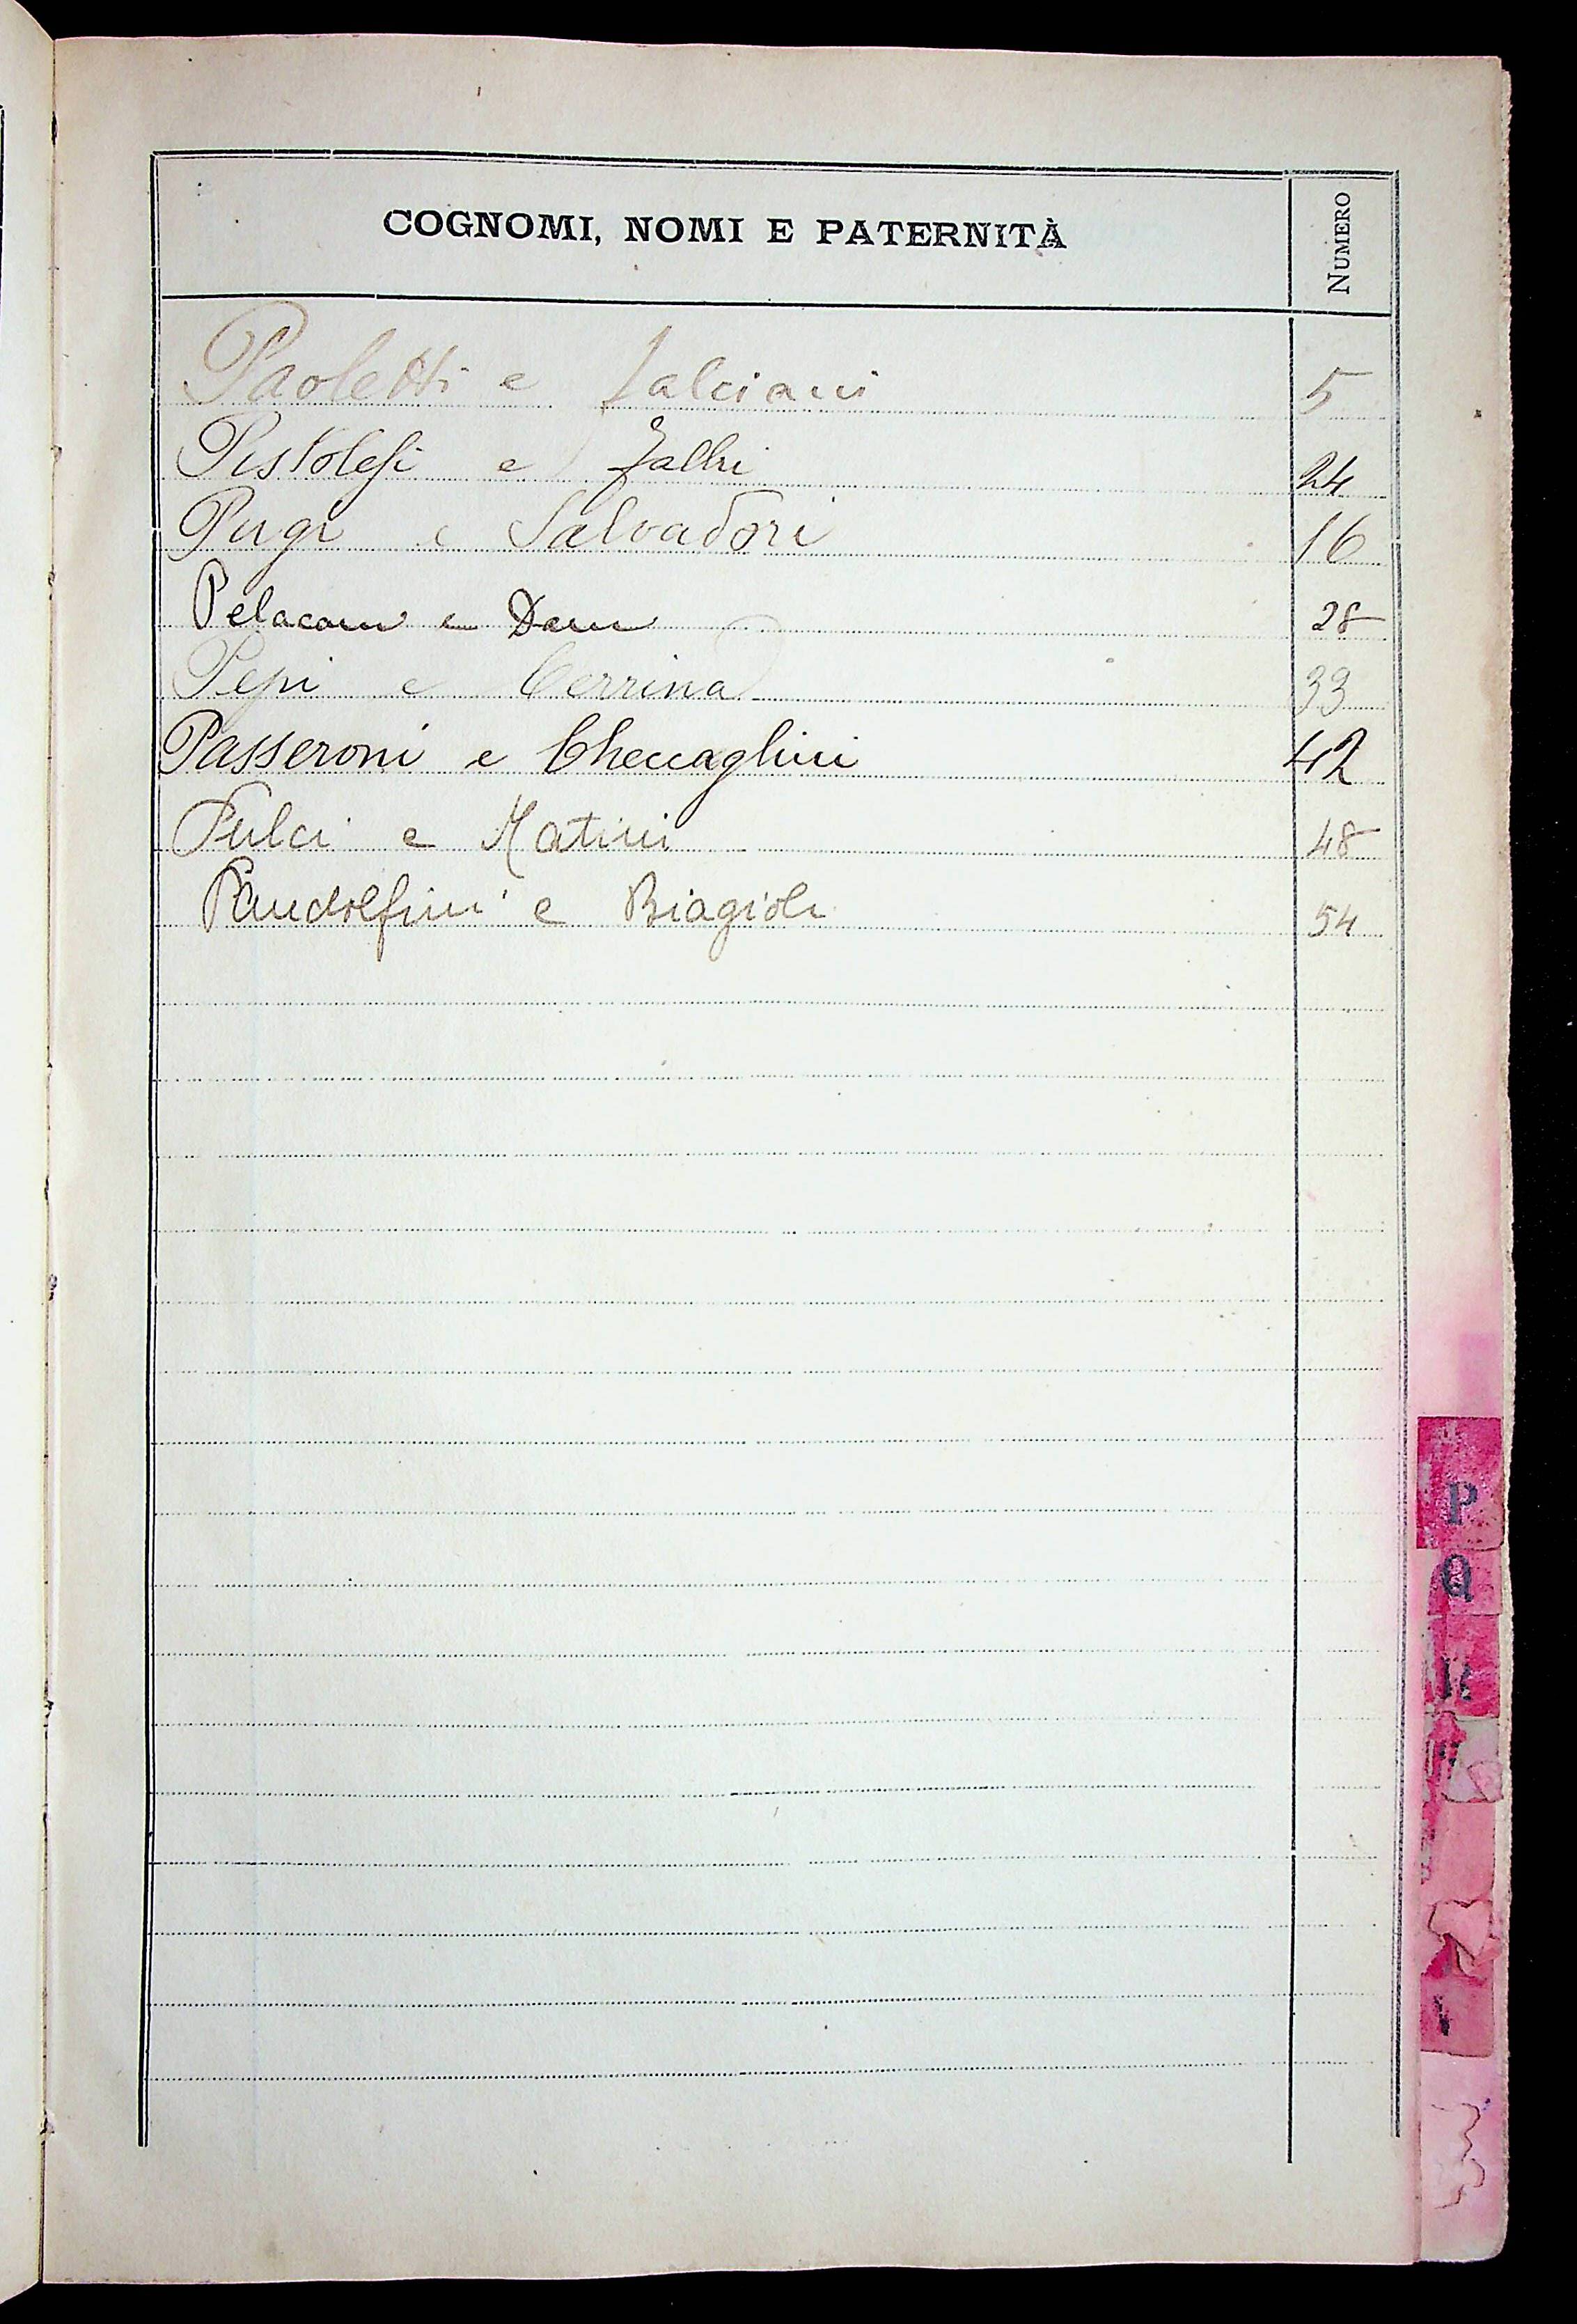 COGNOMI, NOMI E PATERNITÀ NUMERO
Paoletti e Falciani 5
Pistolesi e 24
Pugi e Salvadori 16
Pelacani e Dani 28
Pepi e Cerrina 33
Passeroni e Checcaglini 42
Pulci e Matini 48
Pandolfini e Biagioli 54
P
Q
R